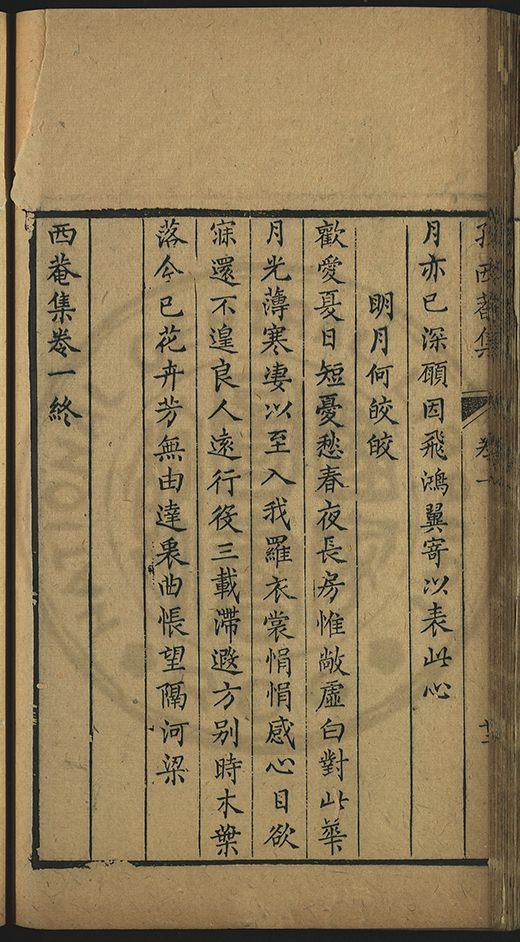 孫西菴集 卷一
月亦已深願因飛鴻翼寄以表此心
明月何皎皎
歡愛夏日短憂愁春夜長房惟敞虛白對此華
月光薄寒凄以至入我羅衣裳悁悁感心目欲
寐還不遑良人遠行役三載滯遐方别時木葉
落今已花卉芳無由達衷曲悵望隔河梁
西菴集卷一終